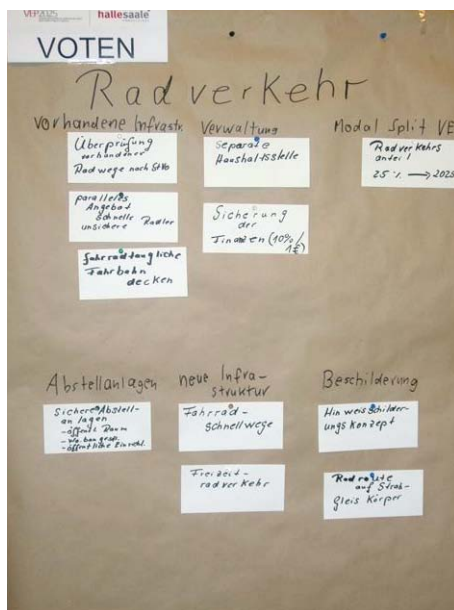 VEP2025
hallesaale
VOTEN
Radverkehr
vorhandene Infrastr.
Überprüfung
vorhandener
Radwege nach StVo
paralleles
Angebot
schnelle
unsichere Radler
fahrradtaugliche
Fahrbahn
decken
Verwaltung
Separate
Haushaltsstelle
Sicherung
der
Finanzen (10%/
1€)
Modal Split VE
Radverkehrs
anteil
25 % → 2025
Abstellanlagen
Sichere Abstell-
anlagen
- öffentl. Raum
- öffentliche Einricht.
neue Infra-
struktur
Fahrrad-
schnellwege
Freizeit-
radverkehr
Beschilderung
Hinweisschilder-
ungskonzept
Radroute
auf Straß-
gleis Körper